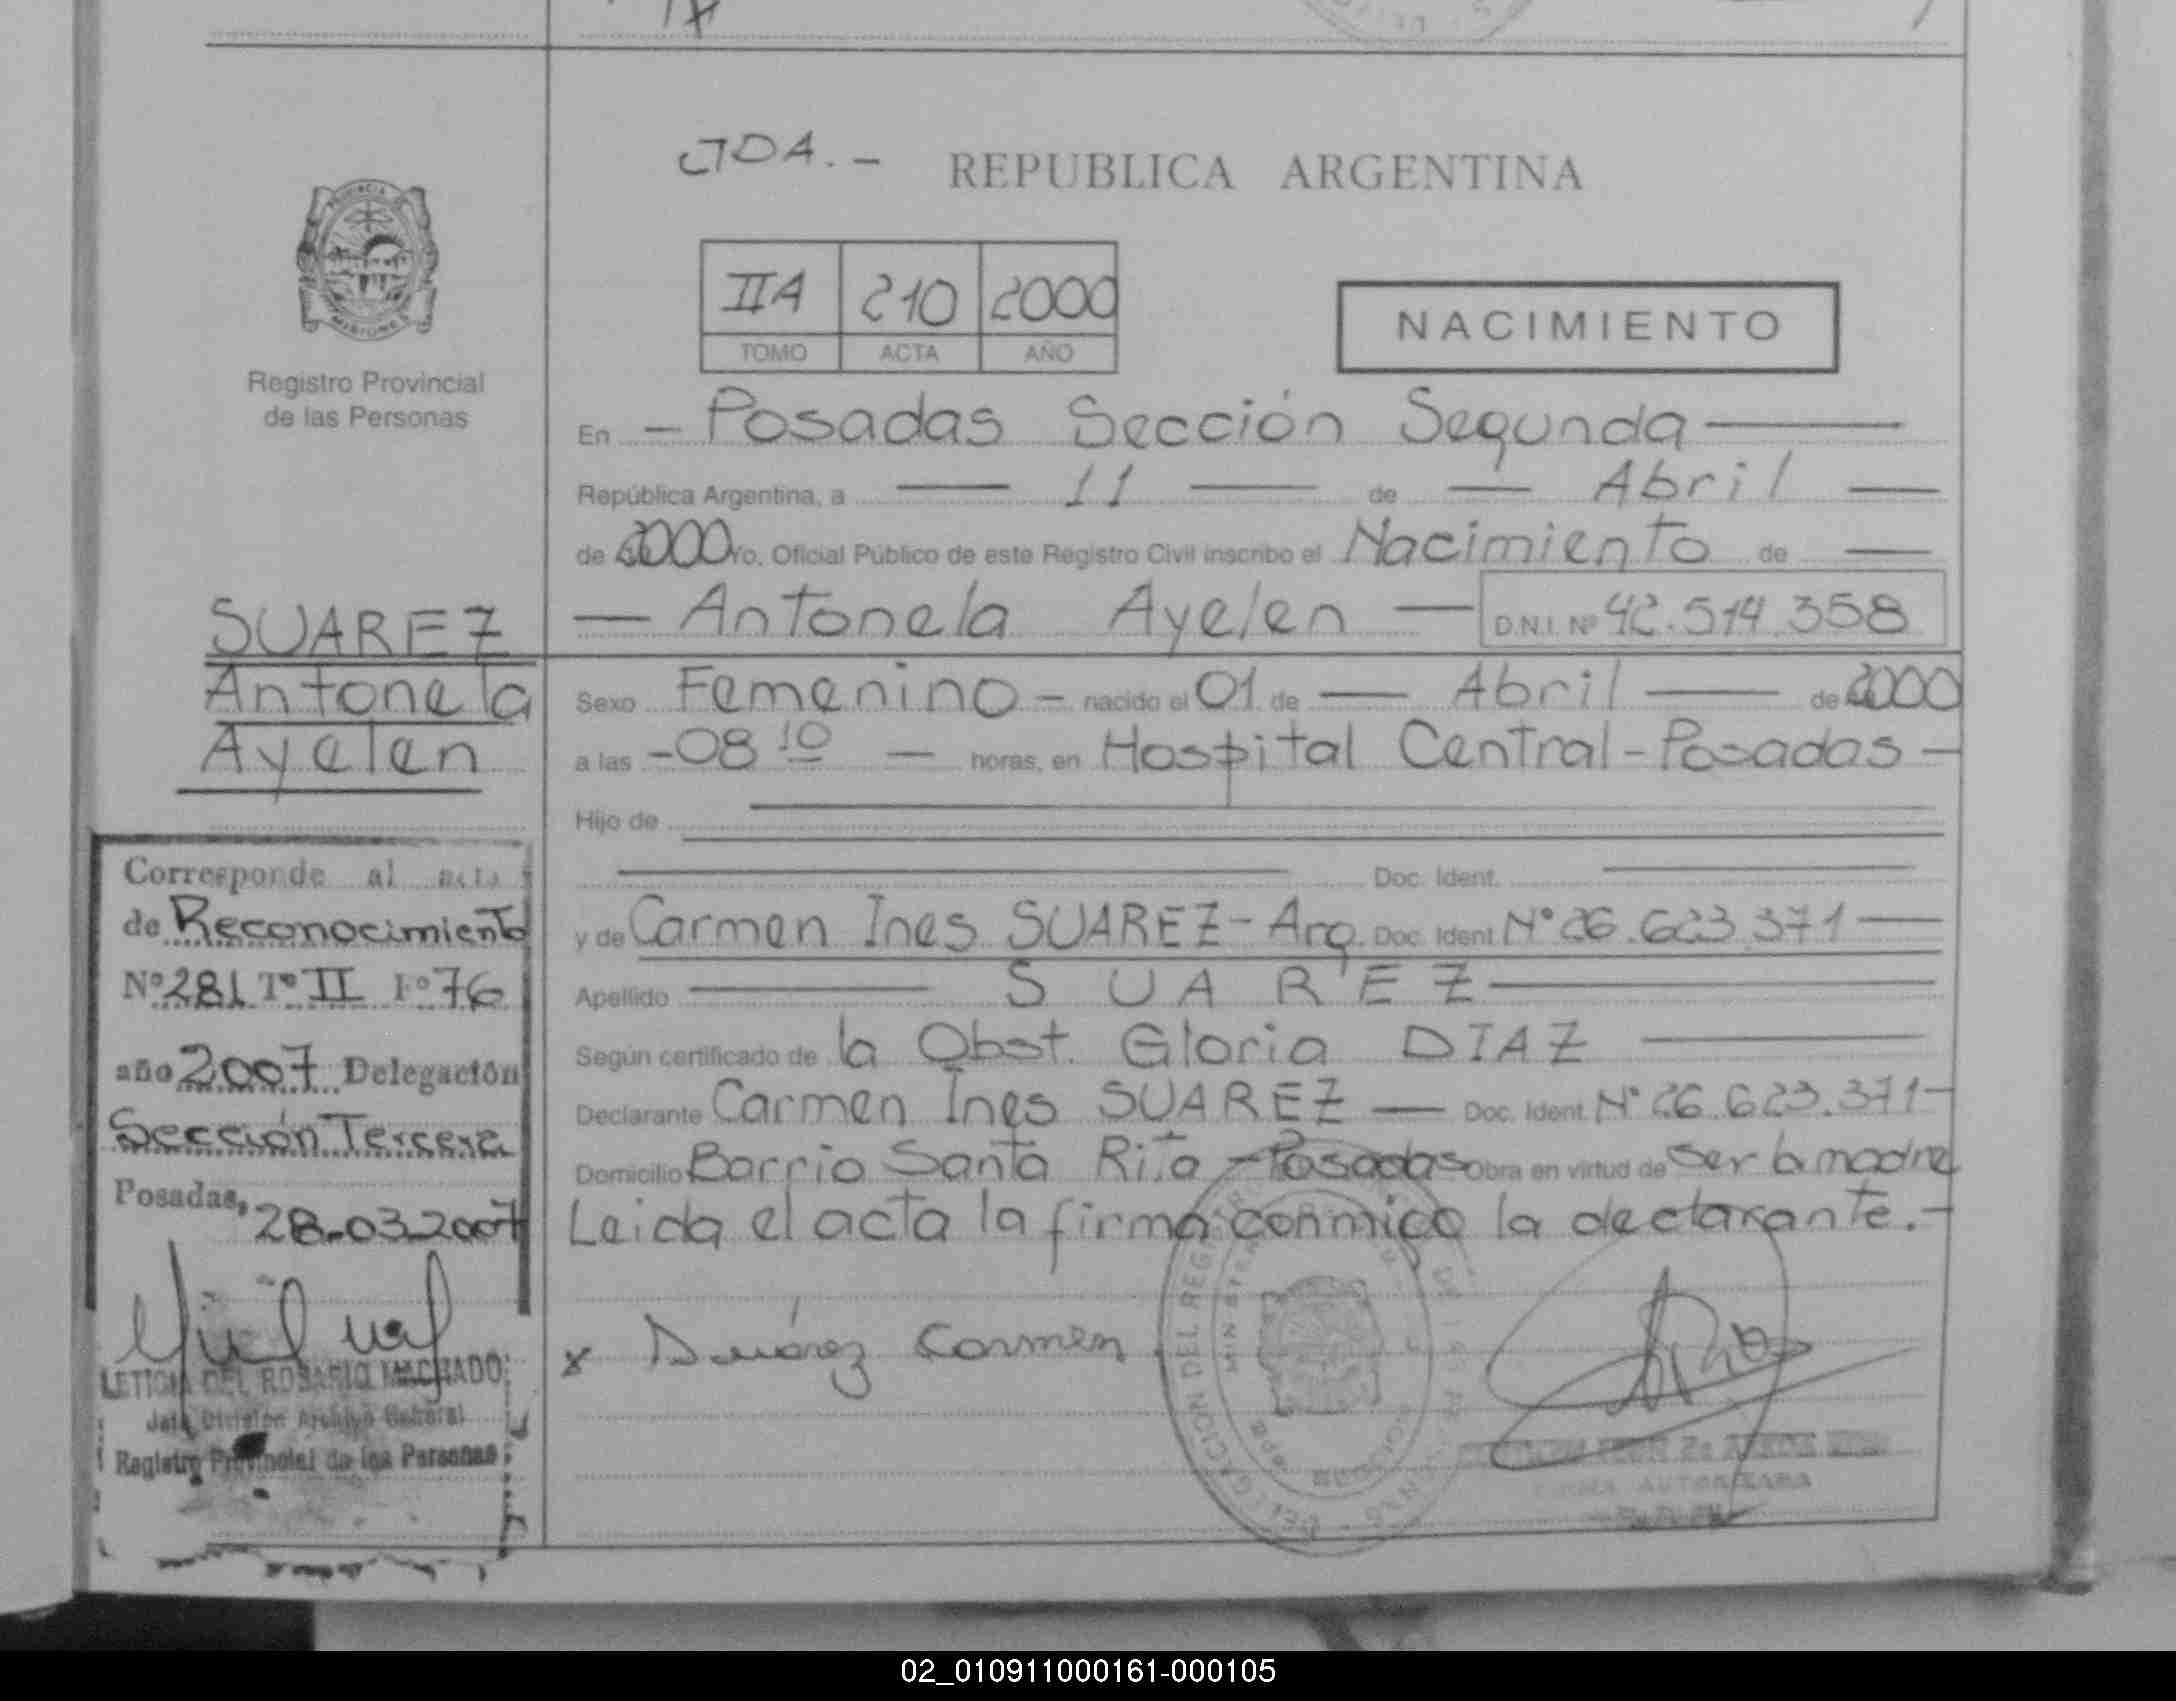 JDA.- REPUBLICA ARGENTINA
IIA 210 2000
TOMO ACTA AÑO
NACIMIENTO
MISIONES
Registro Provincial
de las Personas
En - Posadas Sección Segunda
República Argentina, a 11 de Abril
de 2000 Yo, Oficial Público de este Registro Civil inscribo el Nacimiento de
Antonela Ayelen D.N.I. Nº 42.514.358
SUAREZ
Antonela
Ayelen
Sexo Femenino - nacido el 01 de Abril de 2000
a las - 08 10 horas, en Hospital Central - Posadas -
Hijo de
Doc. Ident.
y de Carmen Ines SUAREZ - Arg. Doc. Ident. Nº 26.623.371
Apellido S U A R E Z
Según certificado de la Obst. Gloria DIAZ
Declarante Carmen Ines SUAREZ Doc. Ident. Nº 26.623.371-
Domicilio Barrio Santa Rita - Posadas Obra en virtud de ser la madre
Leida el acta la firma conmigo la declarante.-
x Suárez Carmen
FIRMA AUTORIZADA
Corresponde al acta
de Reconocimiento
Nº 281 Tº II Fº 76
año 2007 Delegación
Sección Tercera
Posadas, 28-03-2007
LETICIA DEL ROSARIO MACHADO
Jefa División Archivo General
Registro Provincial de las Personas
02_010911000161-000105